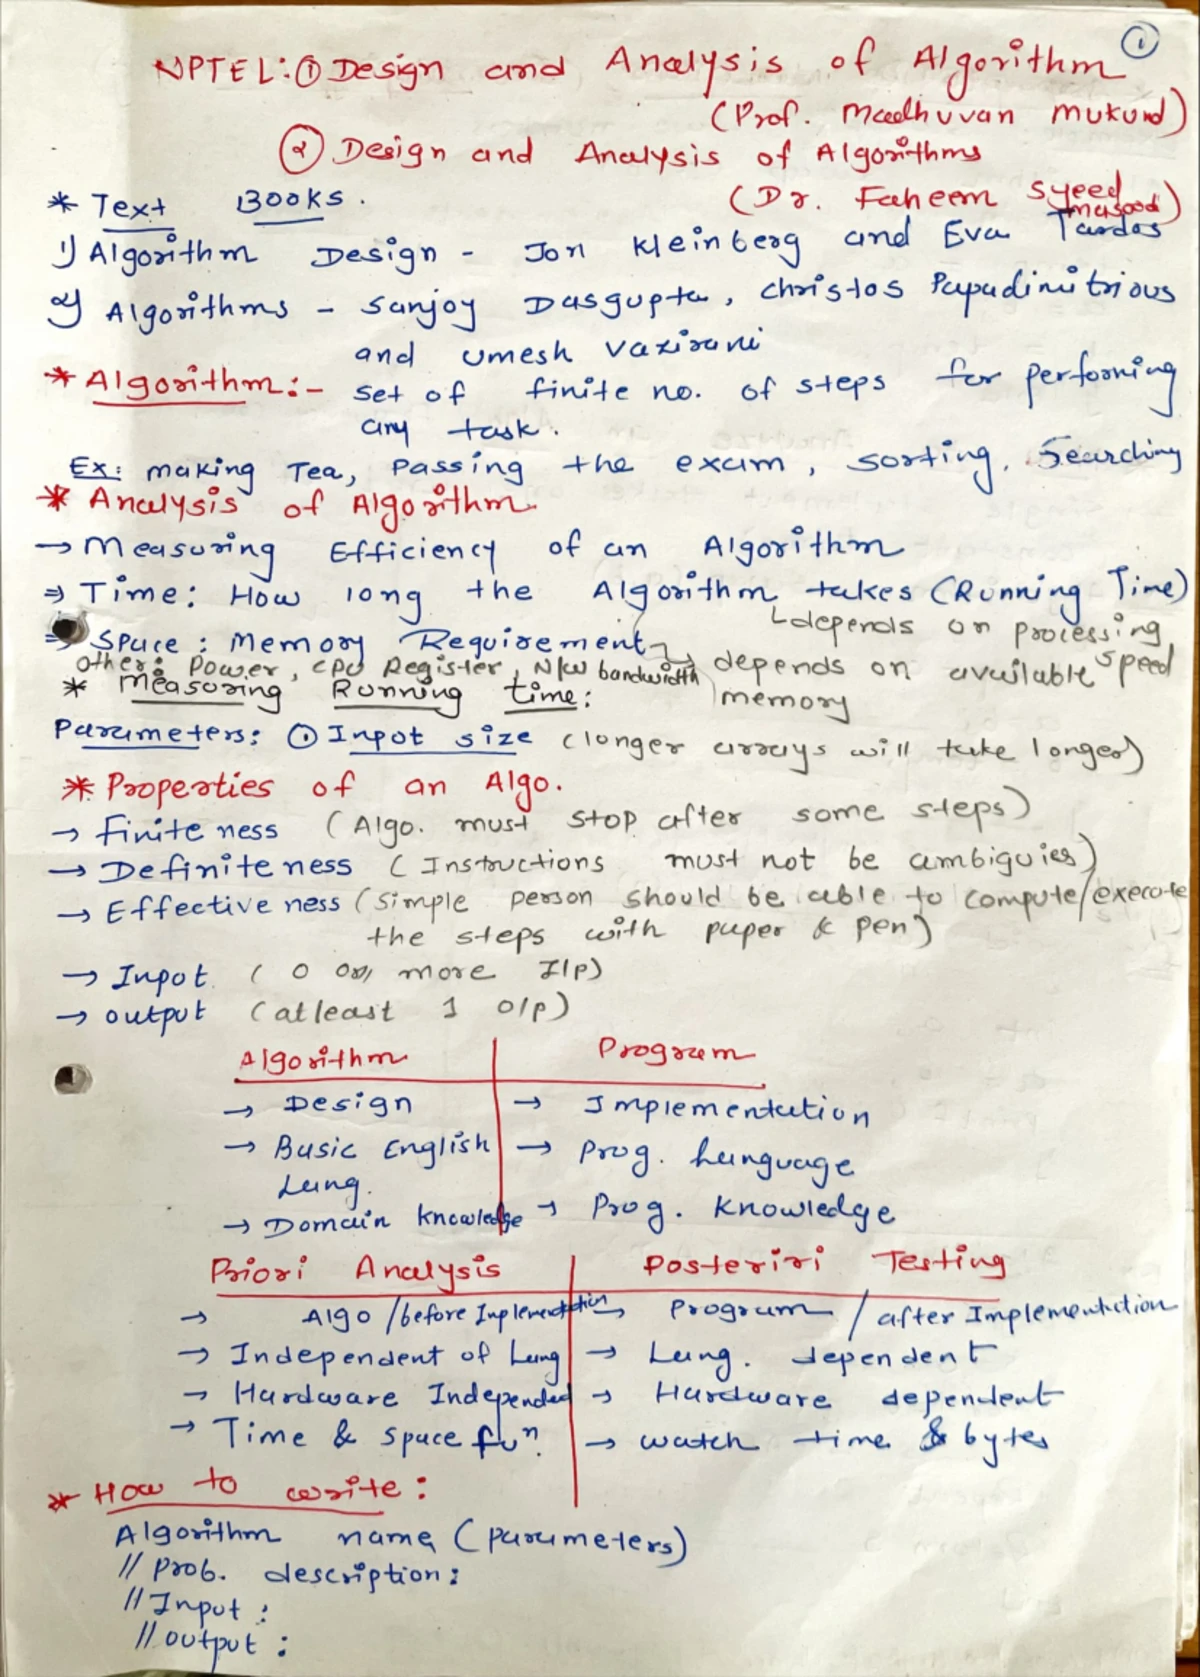 ①
NPTEL: ① Design and Analysis of Algorithm
(Prof. Madhuvan Mukund)
② Design and Analysis of Algorithms
(Dr. Faheem Syeed Masood)
* Text Books.
1) Algorithm Design - Jon Kleinberg and Eva Tardos
2) Algorithms - Sanjoy Dasgupta, Christos Papadimitrious
and Umesh Vazirani
* Algorithm:- Set of finite no. of steps for performing
any task.
Ex: making Tea, Passing the exam, sorting, Searching
* Analysis of Algorithm
→ Measuring Efficiency of an Algorithm
⇒ Time: How long the Algorithm takes (Running Time)
↳ depends on processing speed
⇒ Space: Memory Requirement
↳ depends on available memory
Other: Power, CPU Register, N/W bandwidth
* Measuring Running time:
Parameters: ① Input size (longer arrays will take longer)
* Properties of an Algo.
→ Finiteness (Algo. must stop after some steps)
→ Definiteness (Instructions must not be ambiguies)
→ Effectiveness (Simple person should be able to compute/execute
the steps with paper & pen)
→ Input (0 or more I/p)
→ output (atleast 1 o/p)
Algorithm | Program
→ Design | → Implementation
→ Basic English Lang. | → Prog. Language
→ Domain knowledge | → Prog. Knowledge
Priori Analysis | Posteriri Testing
→ Algo / before Implementation | → Program / after Implementation
→ Independent of Lang | → Lang. dependent
→ Hardware Independed | → Hardware dependent
→ Time & space fuⁿ. | → watch time & bytes
* How to write:
Algorithm name (parameters)
// Prob. description:
// Input:
// output: